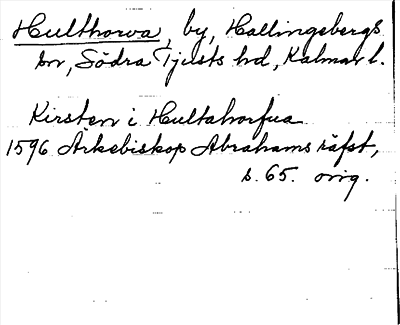 Hulthorva, by, Hallingsbergs
sn, Södra Tjusts hd, Kalmar l.
Kirsten i Hultahorfua
1596 Ärkebiskop Abrahams räfst,
s. 65. orig.